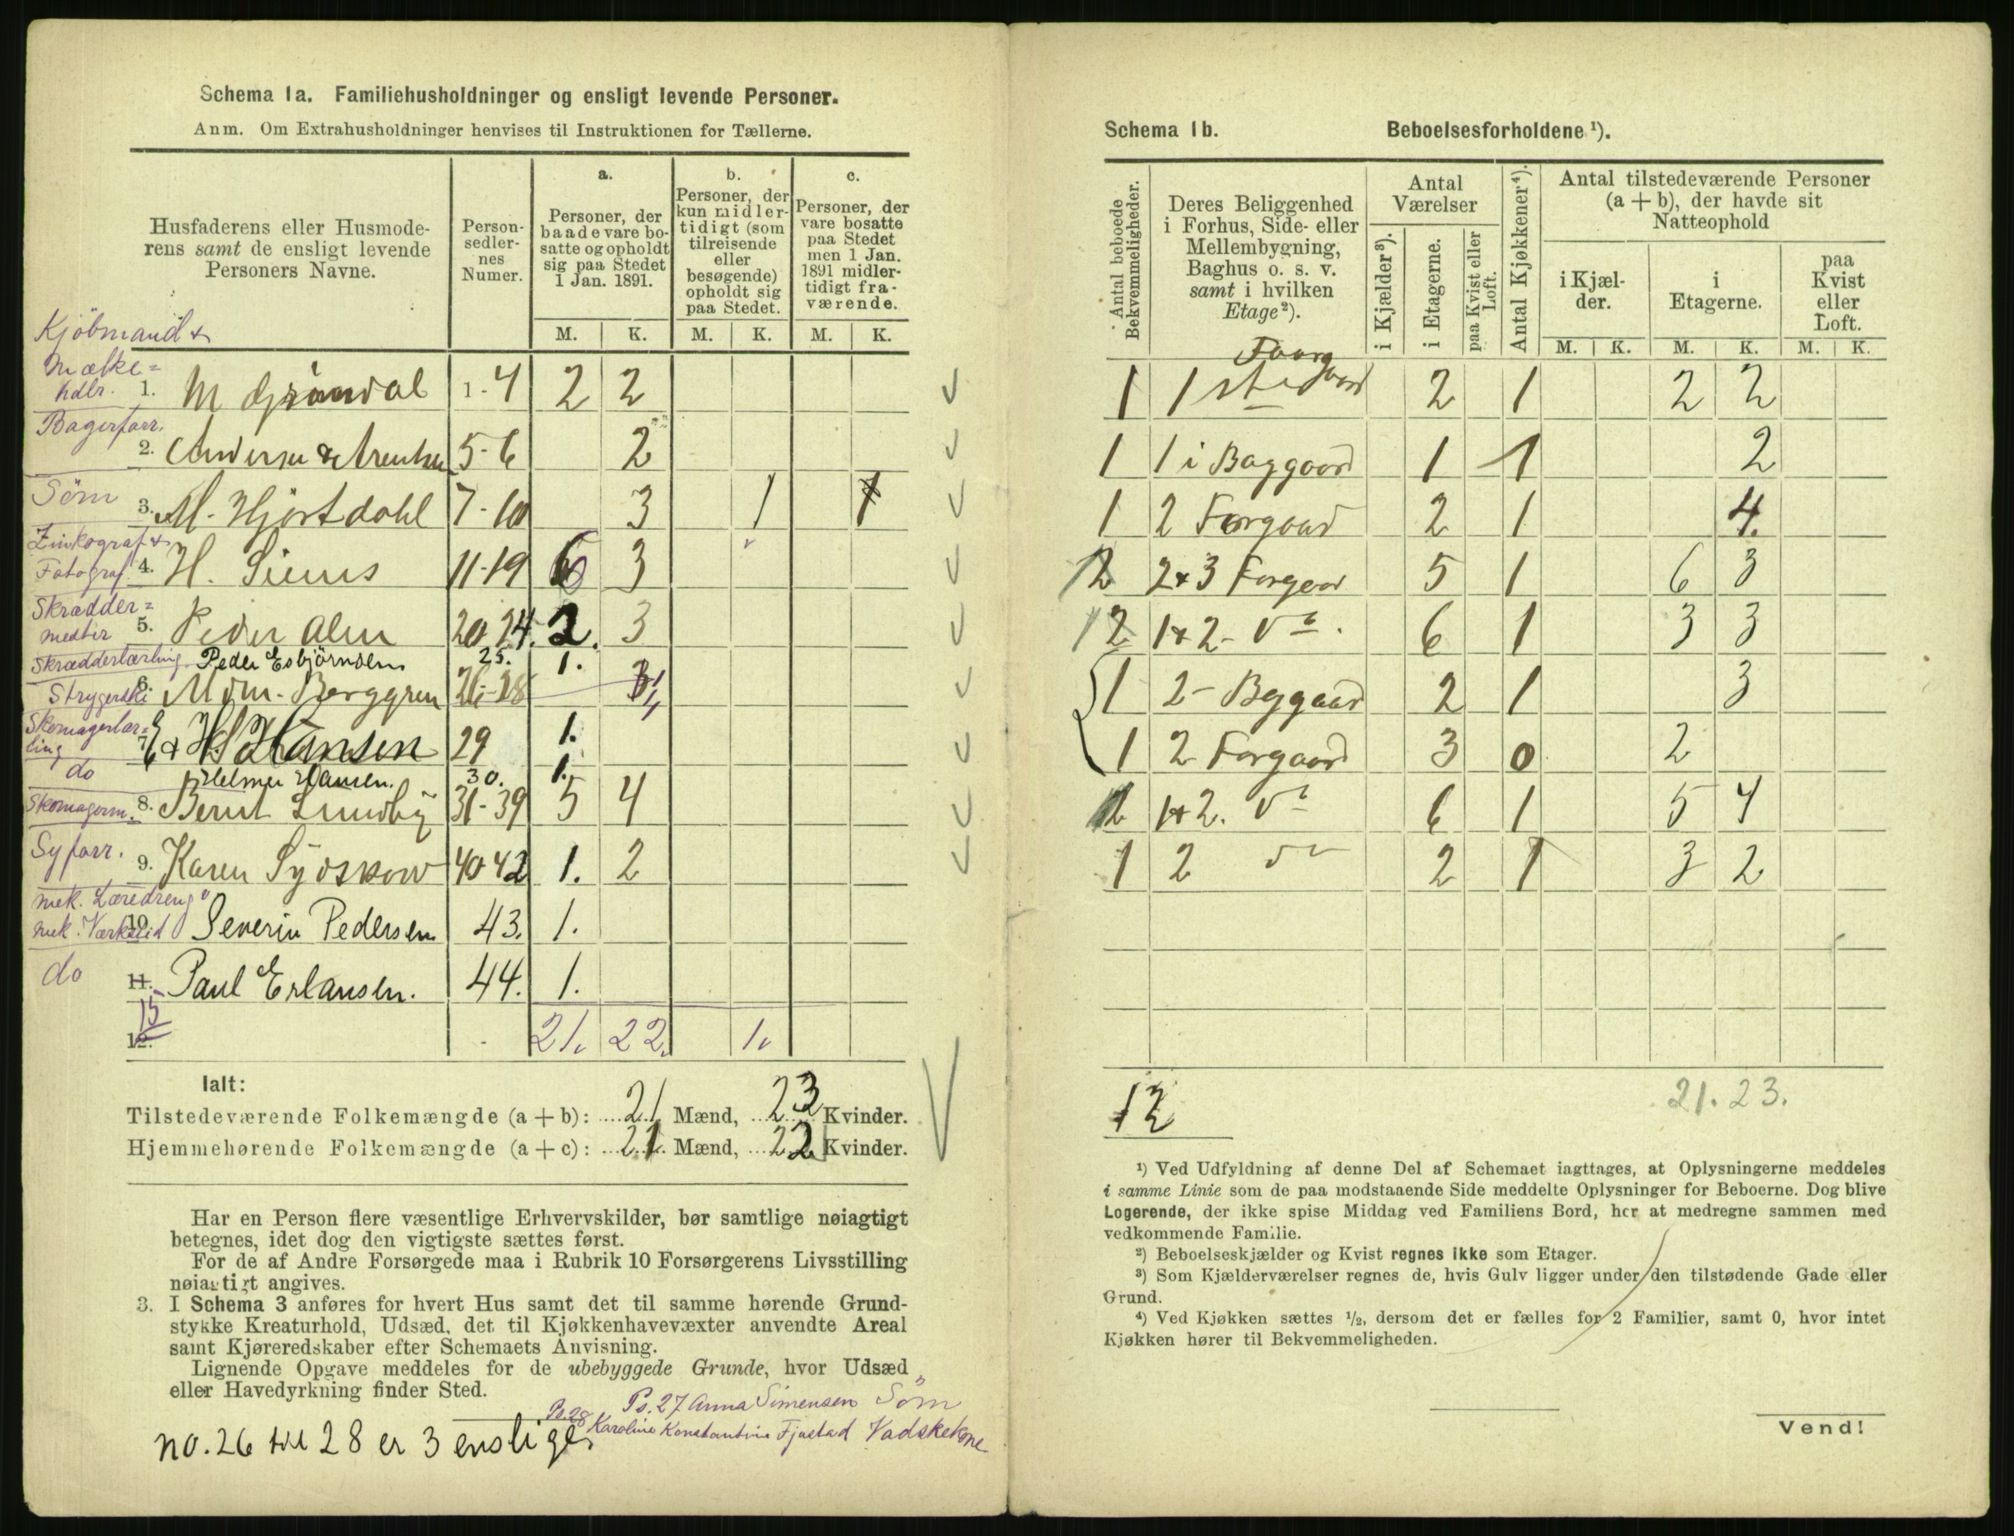 Schema 1a. Familiehusholdninger og ensligt levende Personer.
Anm. Om Extrahusholdninger henvises til Instruktionen for Tællerne.
Husfaderens eller Husmode-
rens samt de ensligt levende
Personers Navne.
Person-
sedler-
nes
Numer.
a.
Personer, der
baade vare bo-
satte og opholdt
sig paa Stedet
1 Jan. 1891.
b.
Personer, der
kun midler-
tidigt (som
tilreisende
eller
besøgende)
opholdt sig
paa Stedet.
c.
Personer, der
vare bosatte
paa Stedet
men 1 Jan.
1891 midler-
tidigt fra-
værende.
M. K. M. K. M. K.
Kjöbmand &
Mælke=
hdlr. 1. M Gröndal 1-4 2 2
Bagerforr.
2. Andersen & 5-6 2
Söm 3. M. Hjortdahl 7-10 3 1 1
Zinkograf &
Fotograf 4. H. Siems 11-19 6 3
Skrædder=
mester 5. Peder Alm 20-24. 2. 3
Skrædderlærling Peder Esbjörnsen 25. 1.
Strygerske 6. Mdm. Berggren 26-28
Skomagerlær=
ling 7. H Hansen 29 1.
do Helmer Hansen. 30. 1.
Skomagerm. 8. Bernt Lundby 31-39 5 4
Syforr. 9. Karen Sydskow 40-42 1. 2
mek. Læredreng
mek. Værksted 10. Severin Pedersen 43. 1.
do 11. Paul Erlansen. 44. 1.
15
12. 21. 22. 1.
Ialt:
Tilstedeværende Folkemængde (a + b): 21 Mænd, 23 Kvinder.
Hjemmehørende Folkemængde (a + c): 21 Mænd, 22 Kvinder.
Har en Person flere væsentlige Erhvervskilder, bør samtlige nøiagtigt
betegnes, idet dog den vigtigste sættes først.
For de af Andre Forsørgede maa i Rubrik 10 Forsørgerens Livsstilling
nøiagtigt angives.
3. I Schema 3 anføres for hvert Hus samt det til samme hørende Grund-
stykke Kreaturhold, Udsæd, det til Kjøkkenhavevæxter anvendte Areal
samt Kjøreredskaber efter Schemaets Anvisning.
Lignende Opgave meddeles for de ubebyggede Grunde, hvor Udsæd
eller Havedyrkning finder Sted.
Ps. 27 Anna Simensen Söm
Ps. 28 Karoline Konstantine Fjestad Vadskekone
no. 26 til 28 er 3 enslige
Schema 1b. Beboelsesforholdene ¹).
Antal beboede
Bekvemmeligheder.
Deres Beliggenhed
i Forhus, Side- eller
Mellembygning,
Baghus o. s. v.
samt i hvilken
Etage²).
Antal
Værelser
i Kjælder³).
i Etagerne.
paa Kvist eller
Loft.
Antal Kjøkkener⁴).
Antal tilstedeværende Personer
(a + b), der havde sit
Natteophold
i Kjæl-
der.
i
Etagerne.
paa
Kvist
eller
Loft.
M. K. M. K. M. K.
1 1 ste Forgaard 2 1 2 2
1 1 i Baggaard 1 1 2
1 2 Forgaard 2 1 4.
2 2 & 3 Forgaard 5 1 6 3
2 1 & 2 - do. 6 1 3 3
1 2 - Bggaard 2 1 3
1 2 Forgaard 3 0 2
2 1 & 2. do 6 1 5 4
1 2 do 2 1 3 2
12
21. 23.
¹) Ved Udfyldning af denne Del af Schemaet iagttages, at Oplysningerne meddeles
i samme Linie som de paa modstaaende Side meddelte Oplysninger for Beboerne. Dog blive
Logerende, der ikke spise Middag ved Familiens Bord, her at medregne sammen med
vedkommende Familie.
²) Beboelseskjælder og Kvist regnes ikke som Etager.
³) Som Kjælderværelser regnes de, hvis Gulv ligger under den tilstødende Gade eller
Grund.
⁴) Ved Kjøkken sættes ¹/₂, dersom det er fælles for 2 Familier, samt 0, hvor intet
Kjøkken hører til Bekvemmeligheden.
Vend!